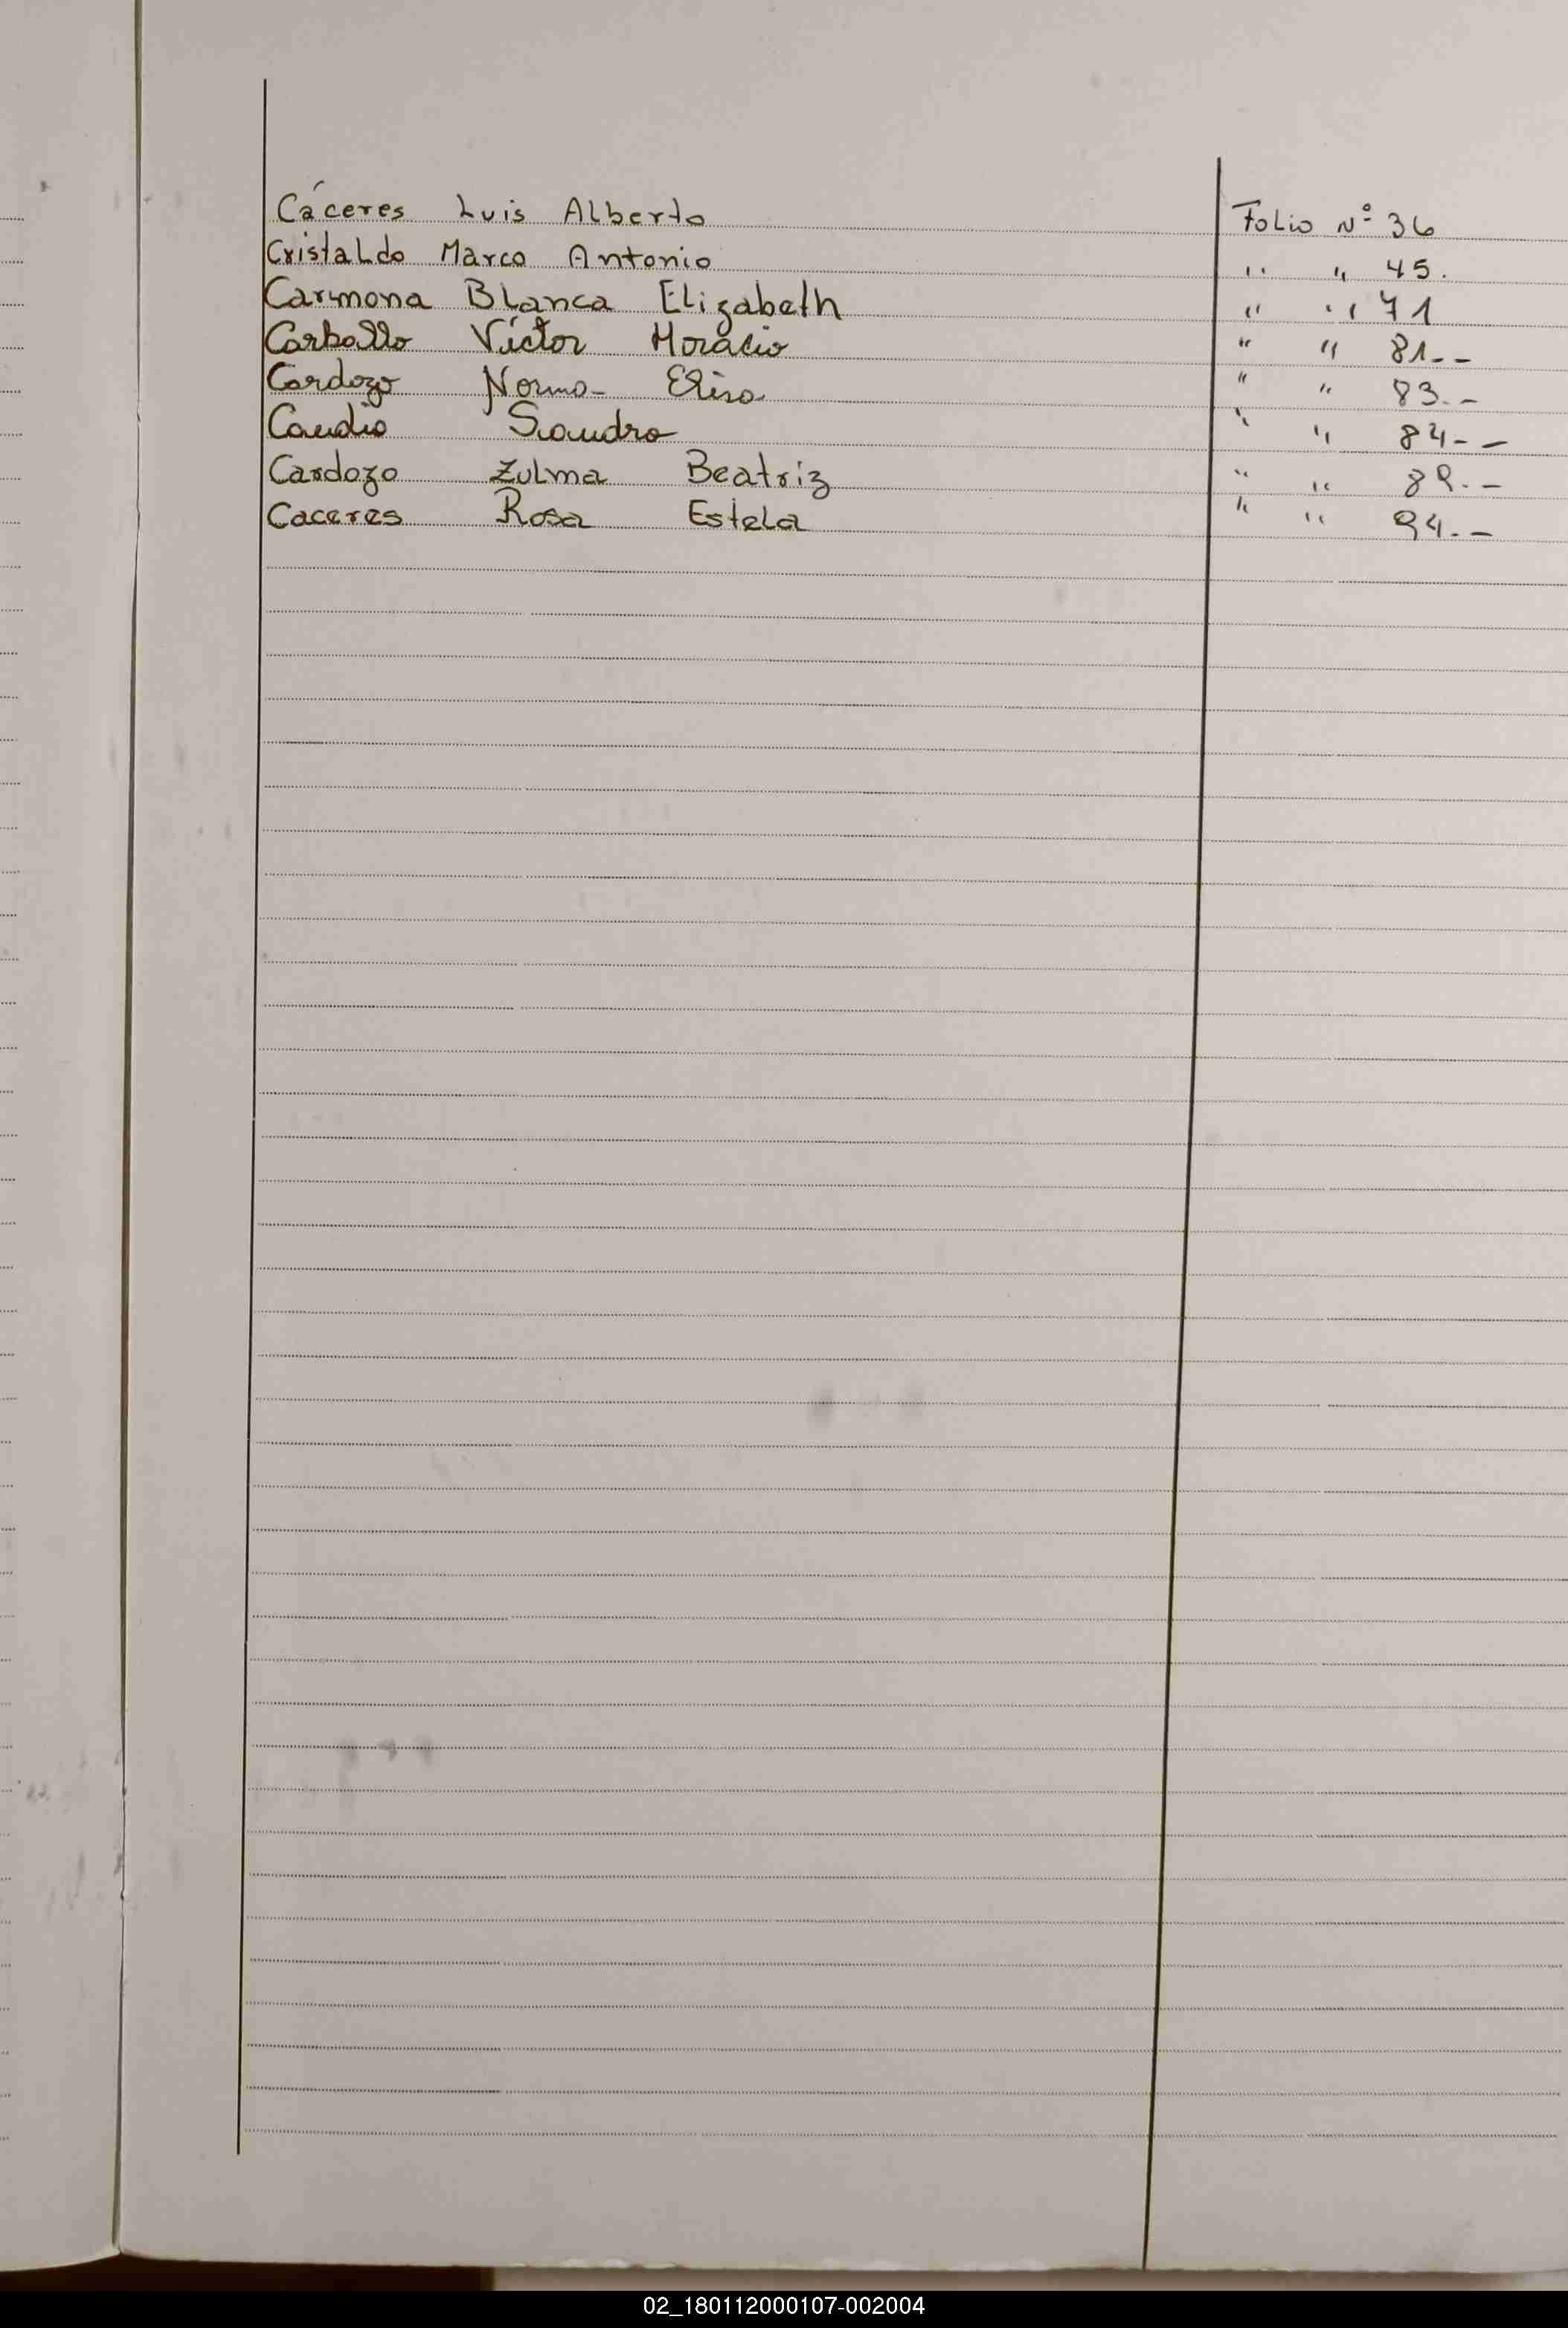 Cáceres Luis Alberto Folio Nº 36
Cristaldo Marco Antonio " " 45.
Carmona Blanca Elizabeth " " 71
Carballo Víctor Horacio " " 81.--
Cardozo Norma Elisa " " 83.-
Candia Sandra " " 84--
Cardozo Zulma Beatriz " " 89.-
Caceres Rosa Estela " " 94.-
02_180112000107-002004